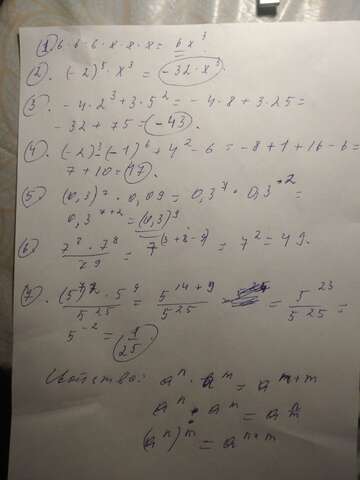 1. 6 · 6 · 6 · x · x · x = 6 x³
2. (-2)⁵ · x³ = -32 · x³.
3. -4 · 2³ + 3 · 5² = -4 · 8 + 3 · 25 =
-32 + 75 = -43.
4. (-2)³ (-1)⁶ + 4² - 6 = -8 + 1 + 16 - 6 =
7 + 10 = 17.
5. (0,3)⁷ · 0,09 = 0,3⁷ · 0,3⁺² =
0,3⁷⁺² = (0,3)⁹
6. = 7⁽³⁺⁸⁻⁹⁾ = 7² = 49.
7. (5⁷)² · 5⁹ / 5²⁵ = 5¹⁴⁺⁹ / 5²⁵ = 5²³ / 5²⁵ =
5⁻² = 1/25.
aⁿ · aᵐ =
aⁿ : aᵐ =
(aⁿ)ᵐ =